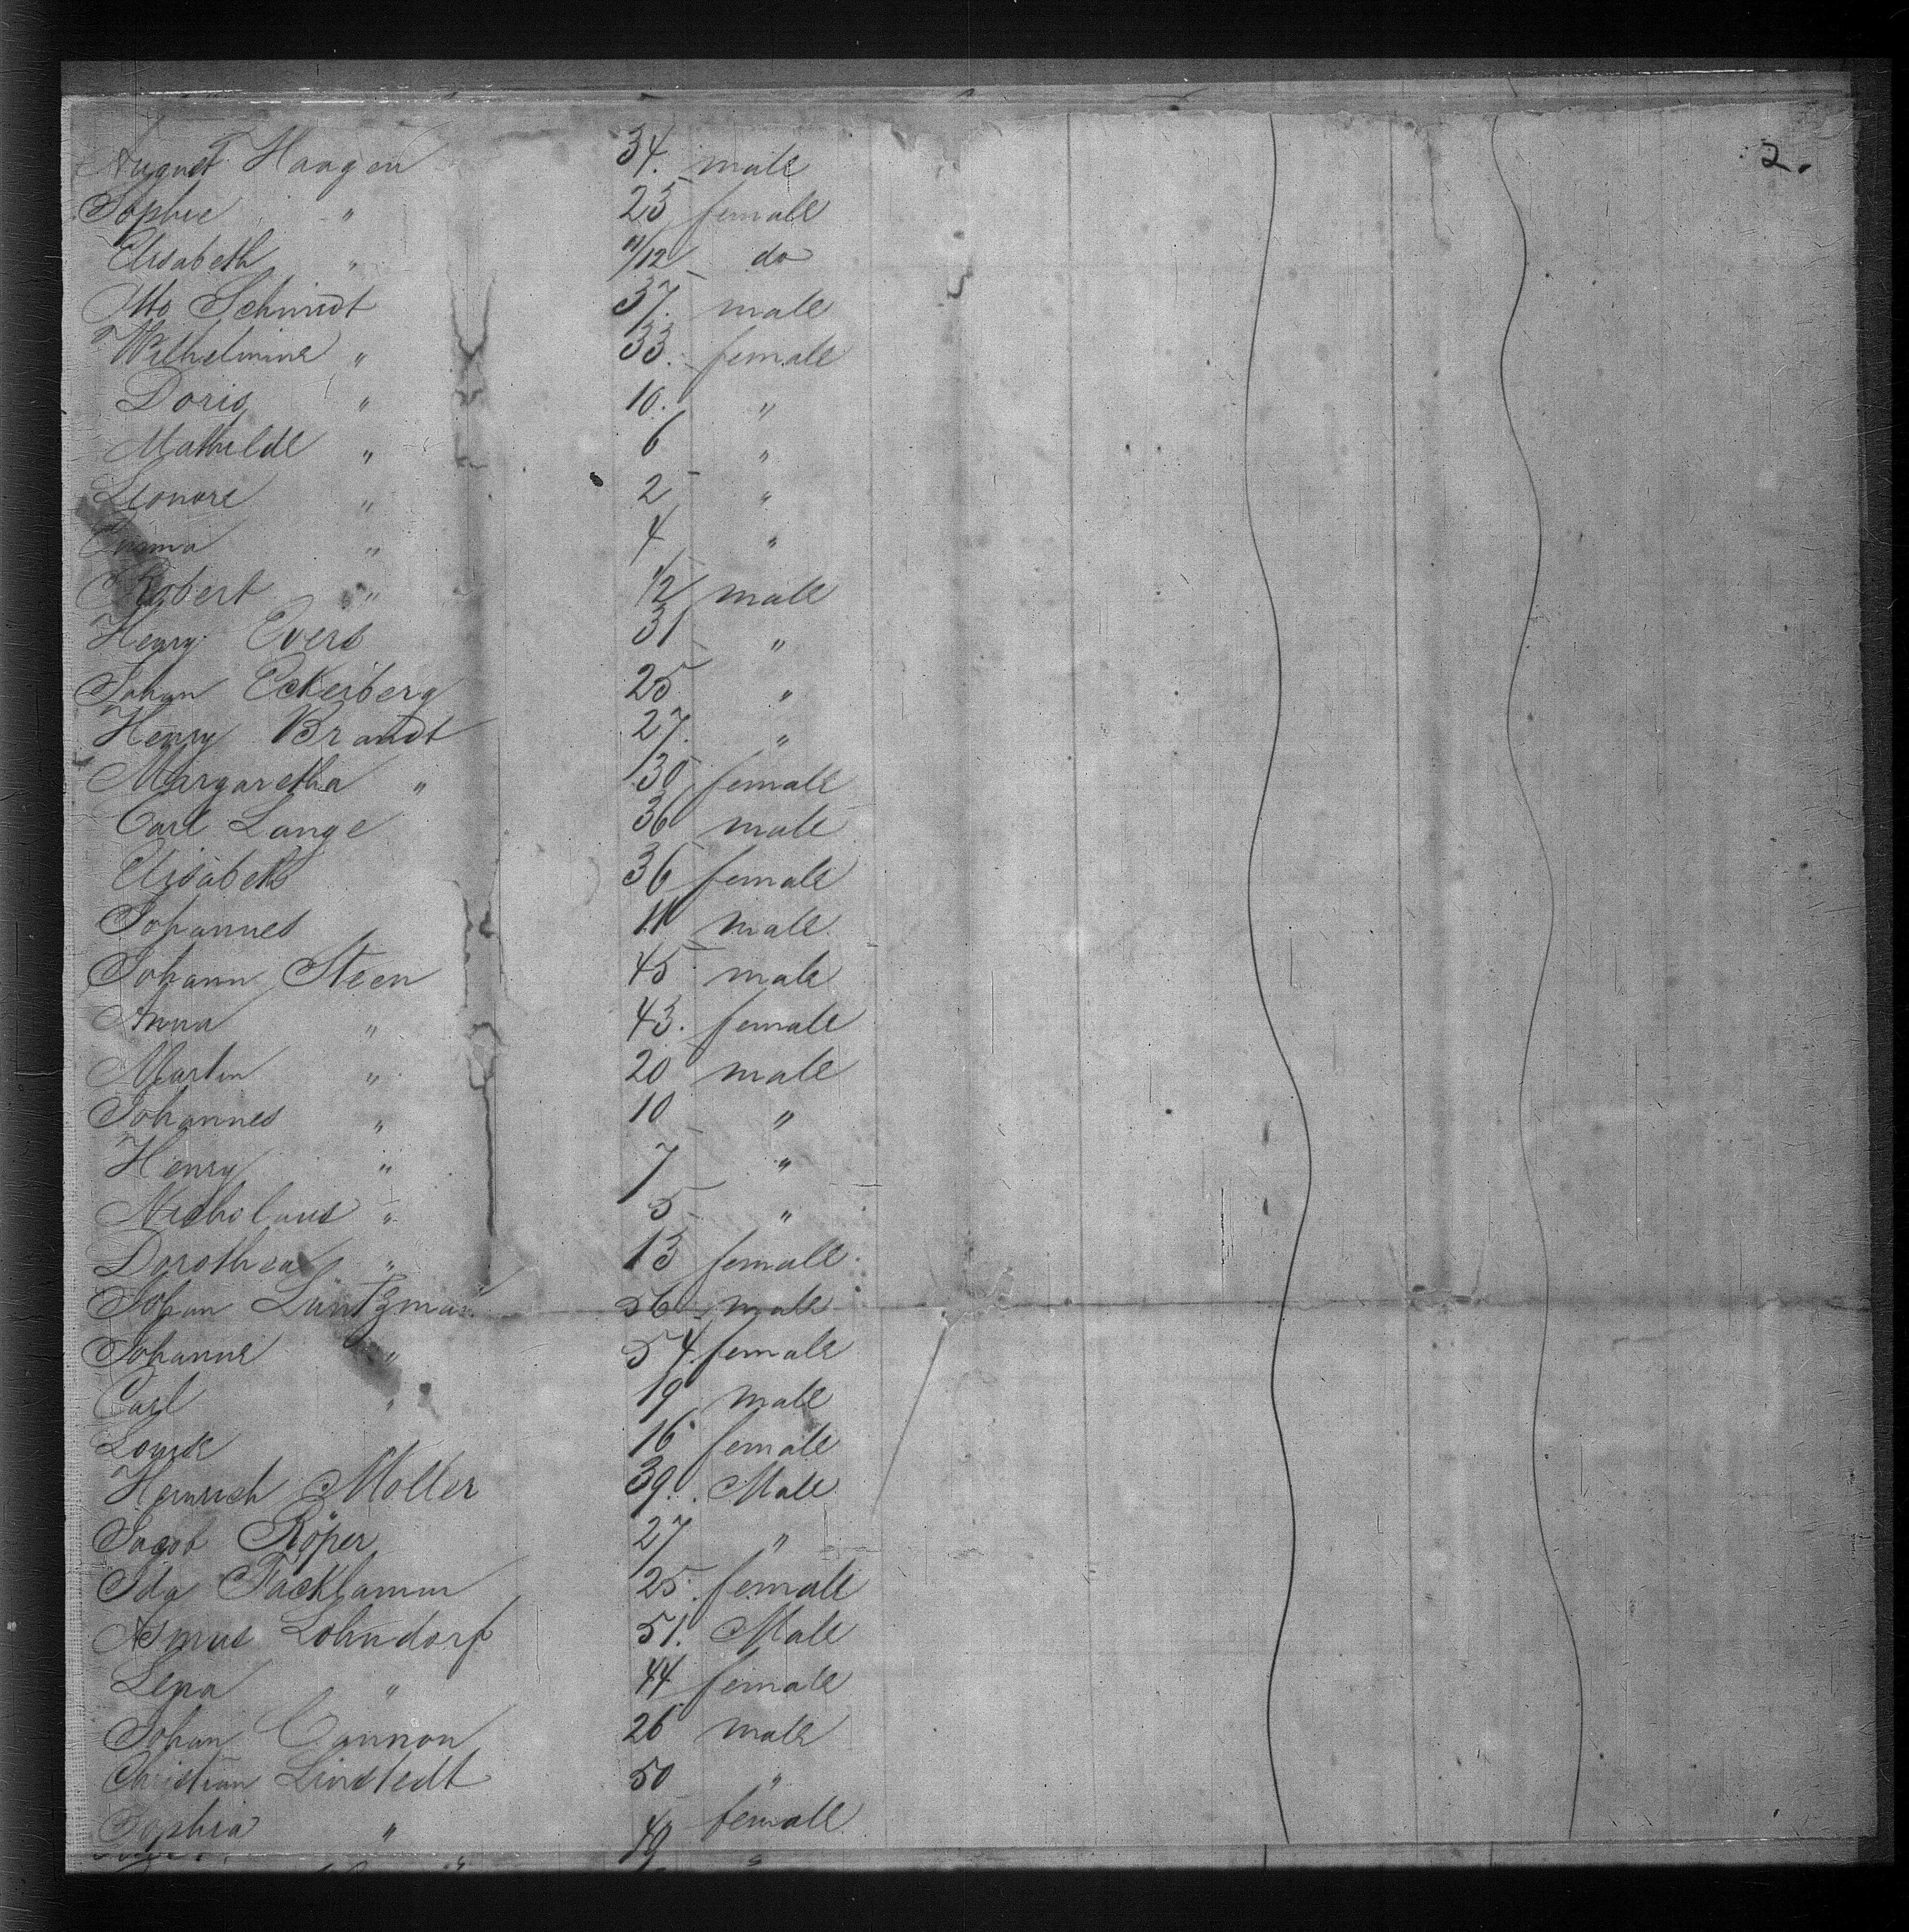 2.
August Haagen 34. male
Sophie " 23 female
Elisabeth " 11/12 do
Otto Schmidt 37. male
Wilhelmine " 33. female
Doris " 10. "
Mathilde " 6 "
Leonore " 2 "
Emma " 4 "
Robert " 1/2 male
Henry Evers 31 "
Johan Eckerberg 25 "
Henry Brandt 27. "
Margaretha " 30 female
Carl Lange 36 male
Elisabeth 36 female
Johannes 11 male
Johann Steen 45 male
Anna " 43. female
Martin " 20 male
Johannes " 10 "
Henry " 7 "
Nicholaus " 5 "
Dorothea " 13 female
Johan Lüntzman 56 male
Johanne " 54 female
Carl " 19 male
Louise 16 female
Heinrich Moller 39. Male
Jacob Röper 27 "
Ida Facklamm 25. female
Asmus Lohndorf 51. Male
Lena " 44 female
Johan Cannon 26 male
Christian Lindstedt 50 "
Sophia " 40 female